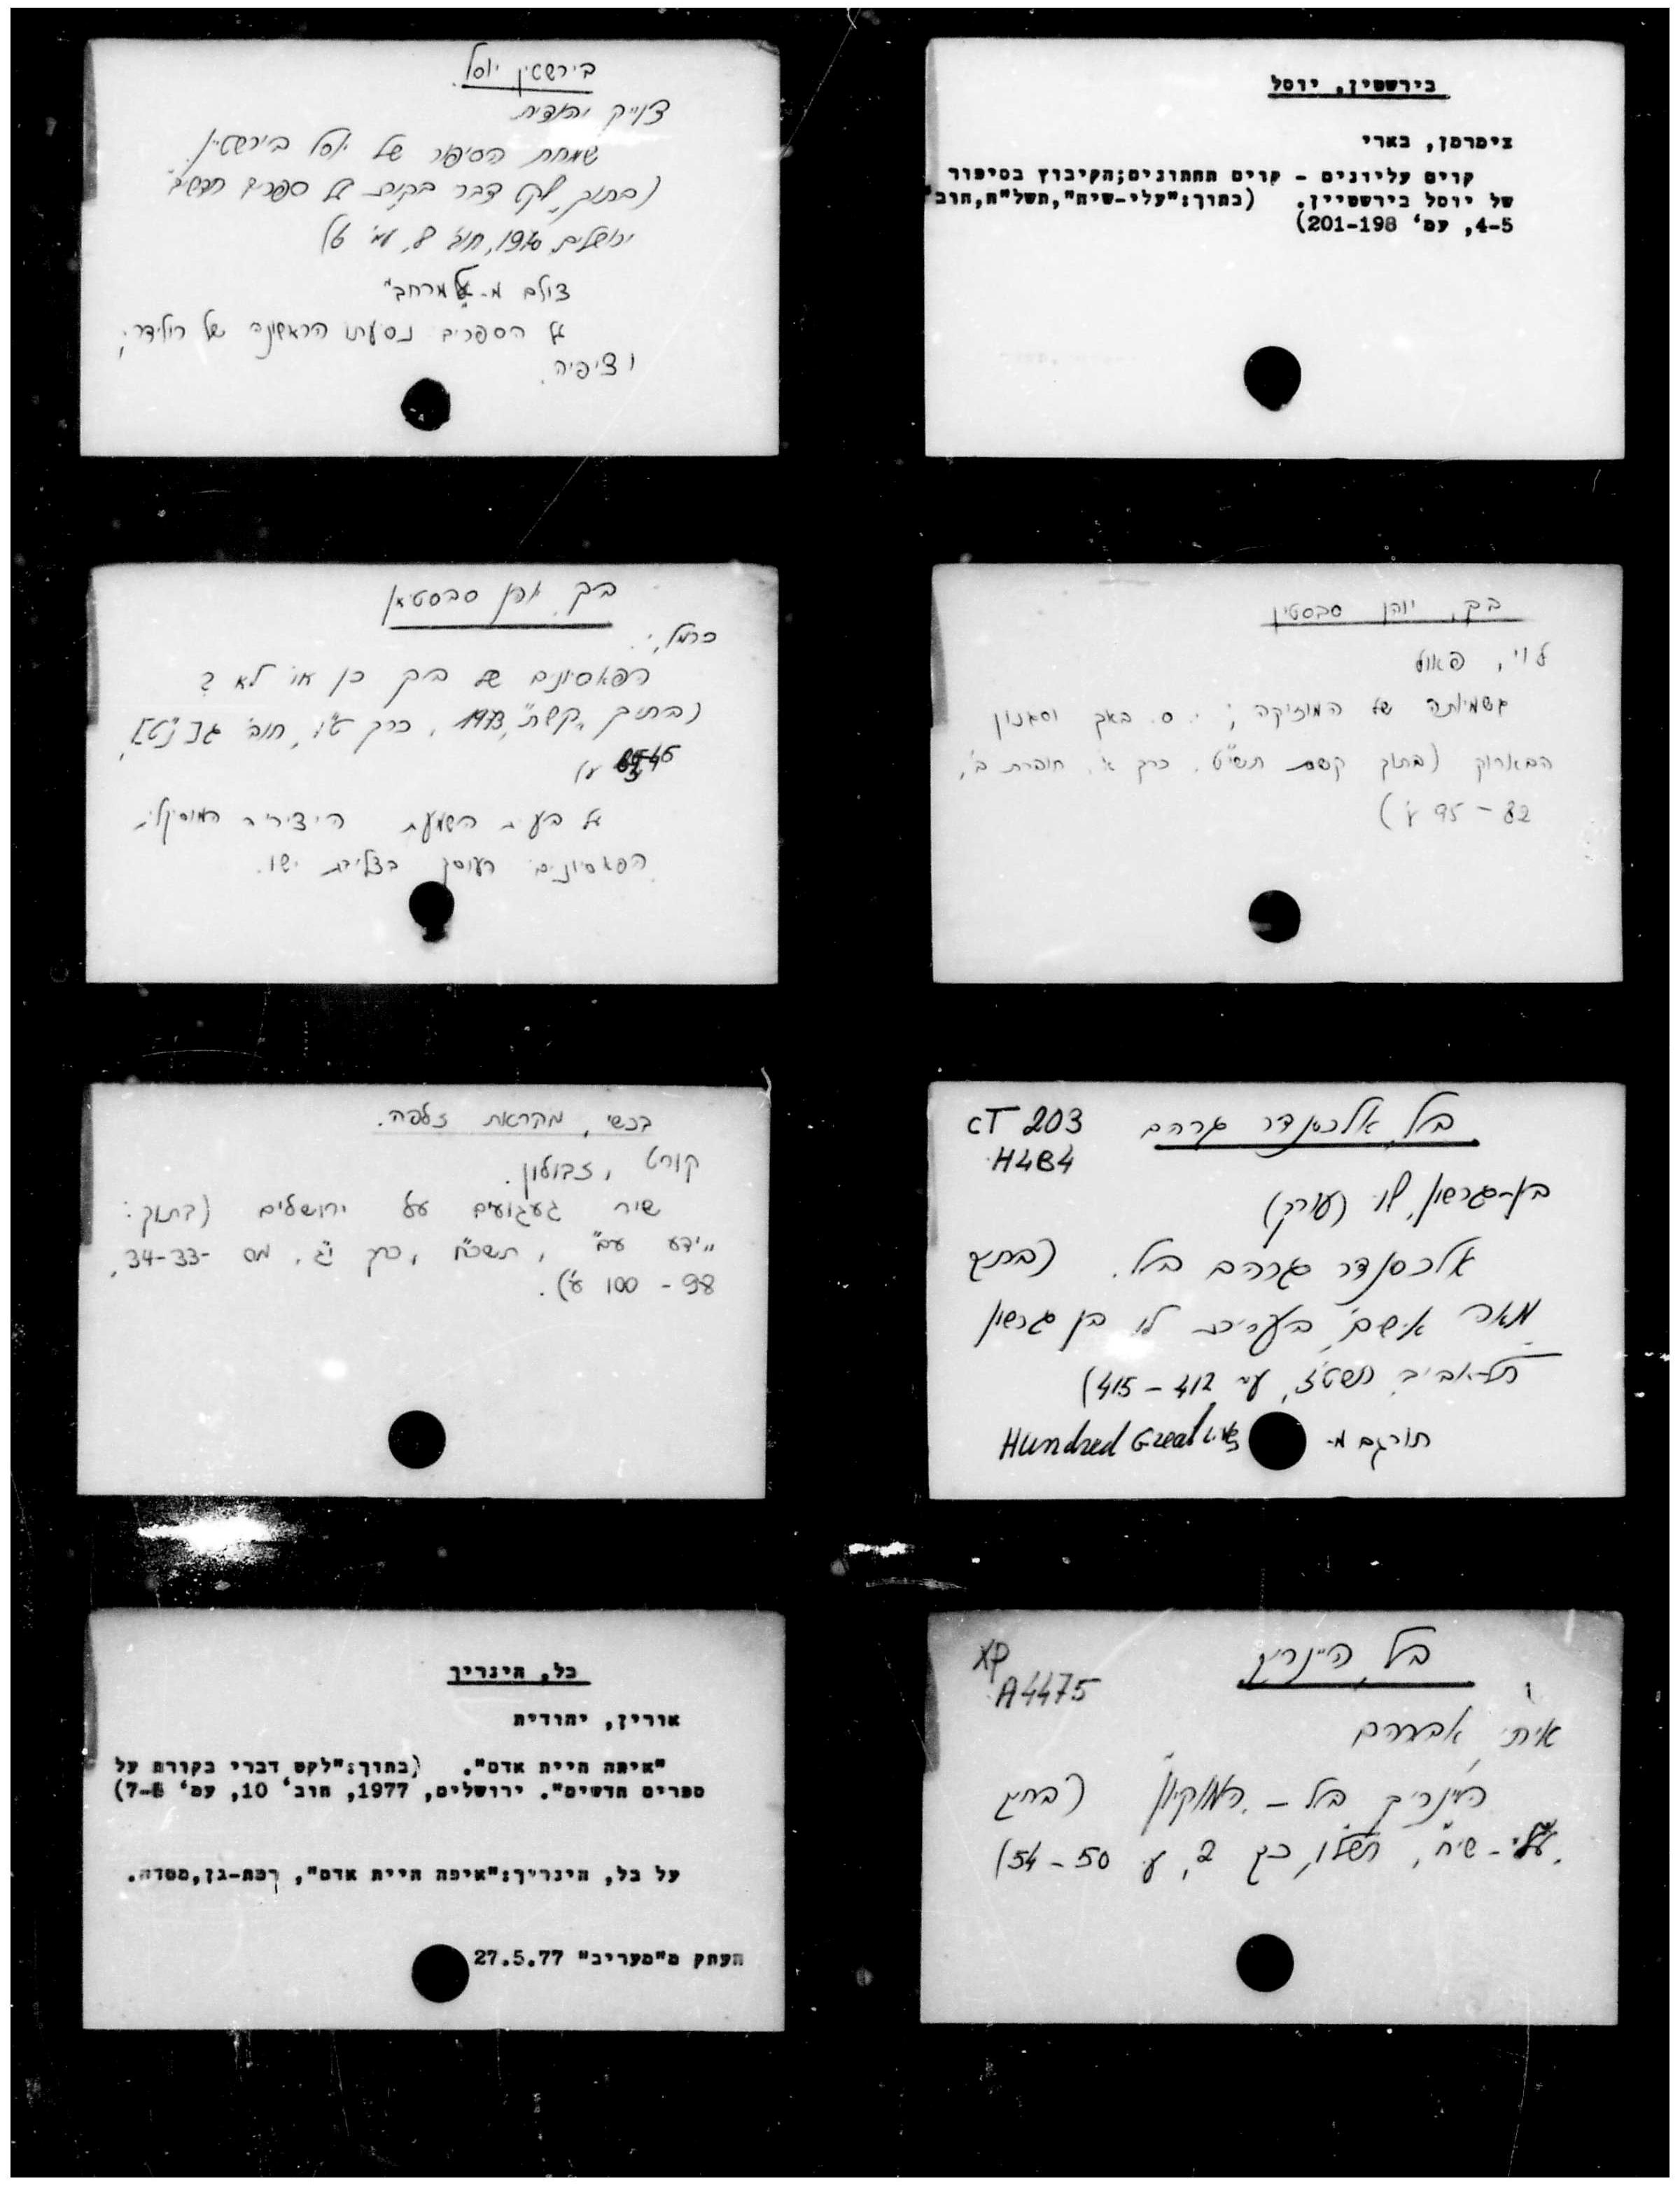 בירשטיין, יוסל
צימרמן, בארי
קוים עליונים - קוים תחתונים;הקיבוץ בסיפור
של יוסל בירשטיין. (בתוך:"עלי-שיח",תשל"ח,חוב'
4-5, עמ' 198-201)
בירשטין יוסל
צוייק יהודית
שמחת הסיפור של יוסל בירשטיין
(בתוך, לקט דבר בקורת על ספרים חדשים
ירושלים, 1970, חוב' 8, עמ' ט)
צולם מ-"על המרחב"
על הספרים נסעתו הראשונה של רולידר,
וציפיה.
בך, יוהן סבסטין
לוי, פאול
גשמיותה של המוזיקה; י. ס. באך וסגנון
הבארוק (בתוך קשת תשי"ט, כרך א', חוברת ב',
82 - 95 ע')
בך, יוהן סבסטיאן
כרמל,
הפאסיונים של בך כן או לא ?
(בתוך "קשת", 1973, כרך ט"ו, חוב' ג [נ"ט],
ע')
על בעית השמעת היצירה המוסיקלית
הפאסיונים העוסק בצליבת ישו.
CT 203
H4B4
בל, אלכסנדר גרהם
בן-גרשון, לו (עורך)
אלכסנדר גרהם בל. (בתוך
מאה אישים, בעריכת לו בן גרשון
תל-אביב, תשט"ז, עמ' 412 - 415)
תורגם מ- Hundred Great Lives
בכשי, מהקראת זלפה.
קורט, זבולון.
שיר געגועים על ירושלים (בתוך:
"ידע עם", תשכ"ח, כרך י"ג, מס 33-34,
98 - 100 ע').
XP
A4475
בל, היינריך
איתי, אברהם
היינריך בל - המוקיון (בתוך
עלי-שיח, תשל"ו, כרך 2, ע' 50 - 54)
בל, הינריך
אוריין, יהודית
"איפה היית אדם". (בתוך:"לקט דברי בקורת על
ספרים חדשים". ירושלים, 1977, חוב' 10, עמ' 7-8)
על בל, הינריך:"איפה היית אדם", רמת-גן,מסדה.
העתק מ"מעריב" 27.5.77